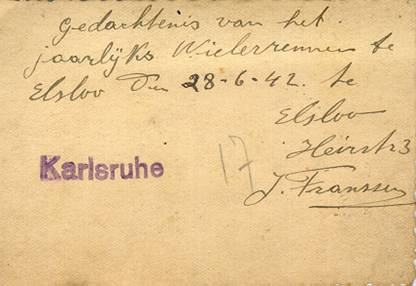 Gedachtenis van het.
jaarlijks Wielerrennen te
Elsloo den 28-6-42. te
Elsloo
Heirstr 3
J. Franssen
17
Karlsruhe